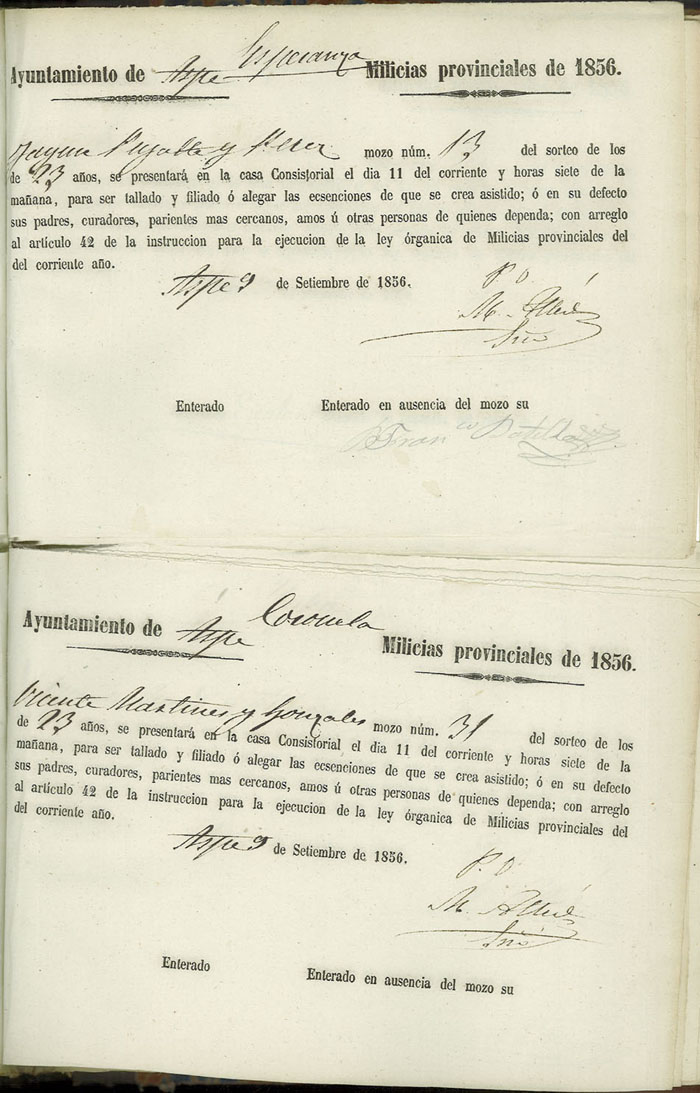 Ayuntamiento de Aspe Esperanza Milicias provinciales de 1856.
y Perez mozo núm. 13 del sorteo de los
de 23 años, se presentará en la casa Consistorial el dia 11 del corriente y horas siete de la
mañana, para ser tallado y filiado ó alegar las ecsenciones de que se crea asistido; ó en su defecto
sus padres, curadores, parientes mas cercanos, amos ú otras personas de quienes dependa; con arreglo
al artículo 42 de la instruccion para la ejecucion de la ley órganica de Milicias provinciales del
del corriente año.
Aspe 9 de Setiembre de 1856.
P. O.
M.
Enterado Enterado en ausencia del mozo su
Ayuntamiento de Aspe Coronela Milicias provinciales de 1856.
Vicente Martinez y Gonzales mozo núm. 31 del sorteo de los
de 23 años, se presentará en la casa Consistorial el dia 11 del corriente y horas siete de la
mañana, para ser tallado y filiado ó alegar las ecsenciones de que se crea asistido; ó en su defecto
sus padres, curadores, parientes mas cercanos, amos ú otras personas de quienes dependa; con arreglo
al artículo 42 de la instruccion para la ejecucion de la ley órganica de Milicias provinciales del
del corriente año.
Aspe 9 de Setiembre de 1856.
P. O.
M.
Enterado Enterado en ausencia del mozo su